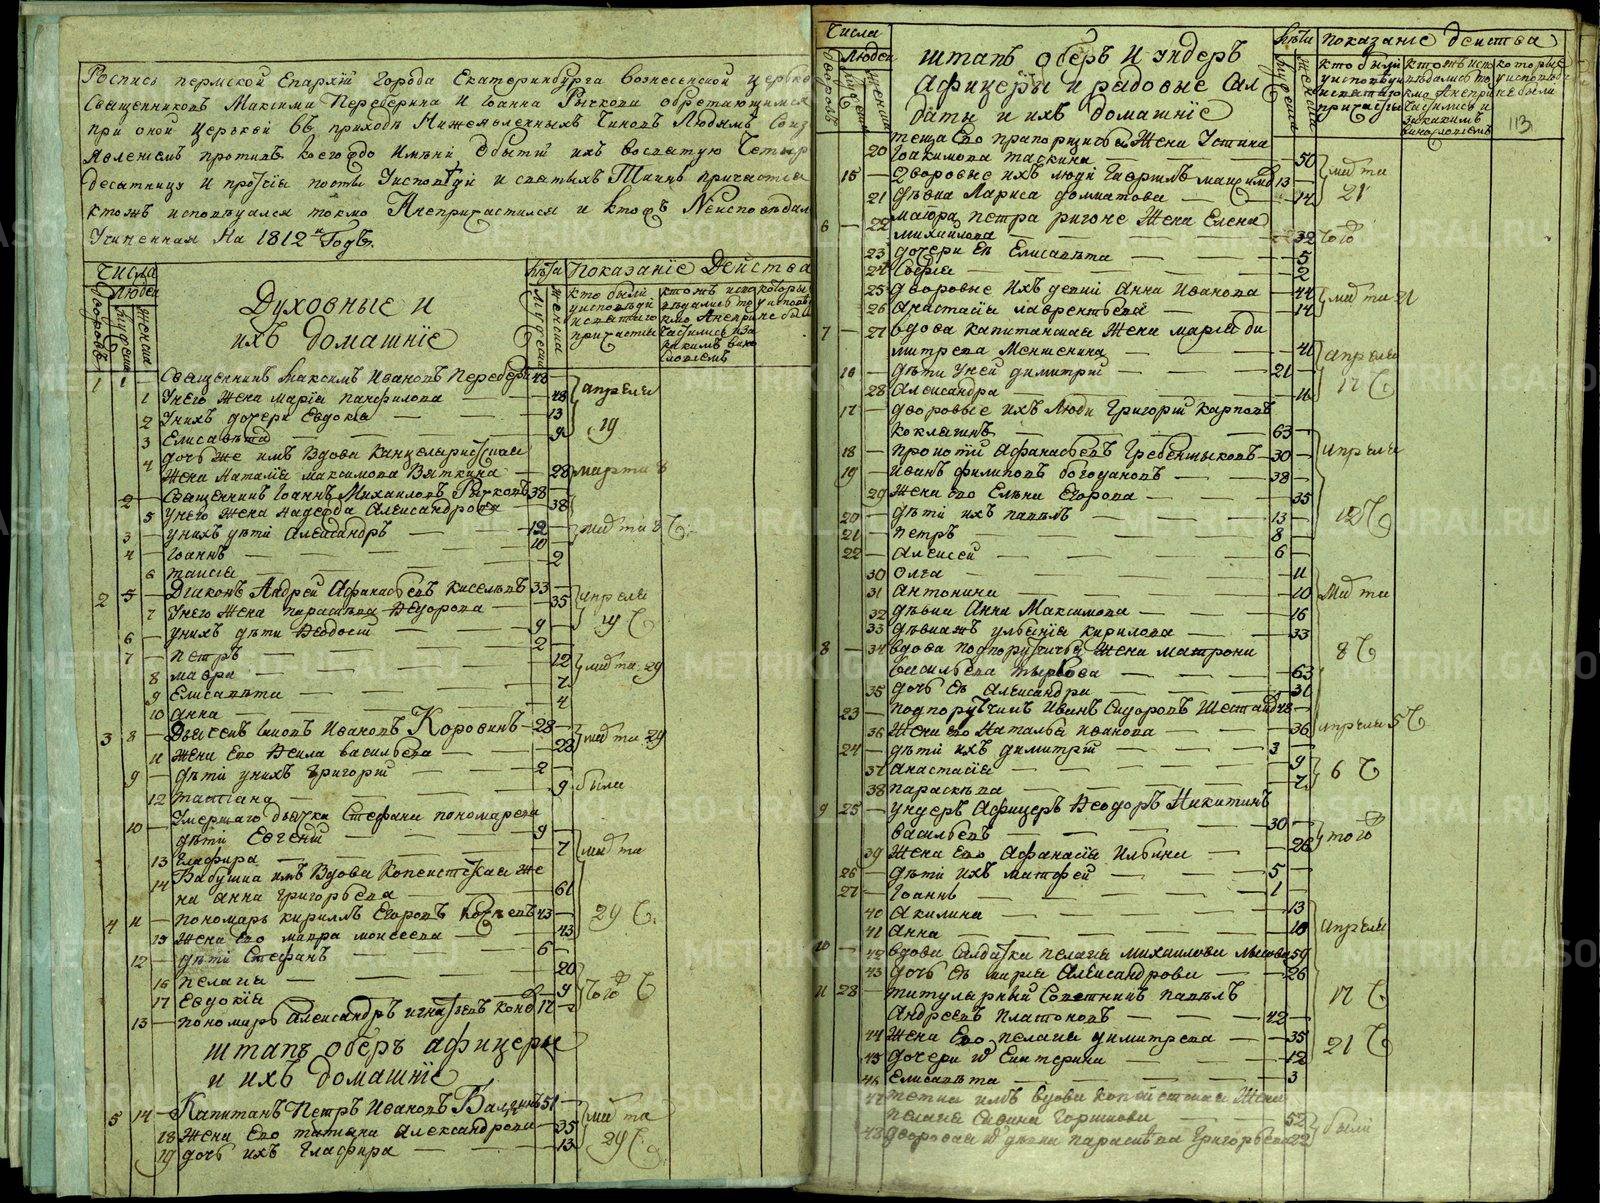 Роспись пермской Епархїи Города Екатеринбурга вознесенской церкве
Священниковъ Максима Переберина И Iоанна Рычкова обретающимся
при оной церькви въ приходѣ Нижеявленныхъ Чиновъ Людямъ Соиз
Явленїемъ противъ коегождо Имяни Обытїи ихъ восвятую Четыр
десятницу И протчїя посты Уисповѣди и святыхъ Таинъ причастїя
ктожъ исповѣдался токмо Анепричастился и ктожъ Неисповѣдал
Учиненная На 1812й Годъ.
Числа
Дворовъ
Людей
Мужеска
Женска
Духовные и
ихъ домашнїе
Лѣта
Мужеска
Женска
Показанїе Действа
кто были уисповѣди исвятаго причастїя
ктожъ исповѣдались токмо Анепричастились иза какимъ винословїемъ
которые уисповѣ не были
1 1 — Священникъ Максимъ Ивановъ Перебери 48 —
1 Унего Жена Марїя Панфилова — 48 апреля
2 Унихъ дочери Евдокїя — 13
3 Елисавѣта — 9 19
4 дочь же имъ Вдова Канцеляристская
Жена Наталїя Максимова Вяткина — 28 марта 8
2 — Священникъ Iоаннъ Михаиловъ Рычковъ 38 —
5 Унего жена Надежда Александрова — 38
3 — унихъ дѣти Александръ — 12 марта 8
4 — Iоаннъ — 10
6 Таисїя — 2
2 5 — Дїаконъ Андрей Афанасьевъ Киселевъ 33 —
7 Унего Жена параскева Ѳедорова — 35 апреля
6 — унихъ дѣти Ѳеодосїй — 9 19
7 — Петръ — 2
8 мавра — 12 марта 29
9 Елисавѣта — 7
10 Анна — 4
3 8 — Дьячекъ Iаковъ Ивановъ Коровинъ — 28 —
11 Жена Его Ѳекла васильева — 28 марта 29
9 — дѣти унихъ Григорїй — 2
12 Татїана — 9 была
Умершаго дьячка Стефана пономарева
10 — дѣти Евгенїй — 9
13 Глафира — 7 марта
Бабушка имъ Вдова Копеистская Же
14 на Анна Григорьева — 61
4 11 — пономарь Кириллъ Егоровъ 43 — 29
15 Жена Его мавра моисеева — 43
12 — дѣти Стефанъ — 6
16 Пелагїя — 20
17 Евдокїя — 9 Того
13 — пономарь Александръ Игнатьевъ Конд 17 —
штапъ оберъ афицеры
и ихъ домашнїе
5 14 — Капитанъ Петръ Ивановъ 51 —
18 Жена Его татїана Александрова — 35 марта
19 дочь ихъ Глафира — 13 29
Числа
Дворовъ
Людей
Мужеска
Женска
штапъ оберъ И ундеръ
Афицеры и рядовые Сал
даты и ихъ домашнїе
Лѣта
Мужеска
Женска
Показанїе действа
кто были уисповѣди исвятаго причастїя
ктожъ исповѣдались токмо Анепричастились и закакимъ виносословїемъ
которые уисповѣди не были
113
теща Его прапорщика Жена Устина
20 Iоакимова Таскина — 50
15 — Дворовые ихъ люди Гаврилъ максимо 13 — марта
21 дѣвка Лариса долматова — 14 21
6 22 маiора петра Жена Елена
михаилова — 32 Того
23 дочери Ея Елисавѣта — 5
24 Софїя — 2
25 дворовые Ихъ девки Анна Иванова — 44 марта 21
26 Анастасїя лаврентьева — 14
7 27 вдова капитанская Жена марїя ди
митрева Меншенина — 41 апреля
16 — дѣти Уней димитрїй — 21 —
28 Александра — 11 17
17 — дворовые ихъ Люди Григорїй Карповъ
Коклягинъ — 63 —
18 — Прокопїй Афанасьевъ Гребенщиковъ — 30 — апреля
19 — Иванъ филиповъ богодановъ — 38 —
29 Жена Его Елена Егорова — 35
20 — дѣти ихъ павелъ — 13 — 12
21 — Петръ — 8
22 — Алексей — 6
30 Олга — 11
31 Антонина — 10 марта
32 дѣвка Анна Максимова — 16
33 дѣвкажъ улїанїя Кирилова — 33
8 34 вдова подпоручичья Жена матрона
васильева — 63 8
35 дочь Ея Александра — 31
23 — подпоручикъ Иванъ Сидоровъ 48 —
36 Жена его Наталья Иванова — 36 апреля 5
24 — дѣти ихъ димитрїй — 3
37 Анастасїя — 9
38 параскева — 7 6
9 25 — ундеръ Афицеръ Ѳеодоръ Никитинъ
васильевъ — 30 —
39 Жена Его Афанасїя Ильина — 26 того
26 — дѣти ихъ матфей — 5
27 — Iоаннъ — 1
40 Акилина — 13
41 Анна — 10 апреля
10 42 вдова Салдатка пелагїя михаилова 59
43 дочь Ея марїя Александрова — 26
11 28 — титулярный Советникъ павелъ 17
Андреевъ Платоновъ — 42 —
44 Жена Его пелагїя димитрева — 35
45 дочери Екатерина — 12 21
46 Елисавѣта — 3
47 тетка имъ вдова копеистская Жена
пелагїя Горшкова 52
48 дворовая дѣвка параскева Григорьева 22 были